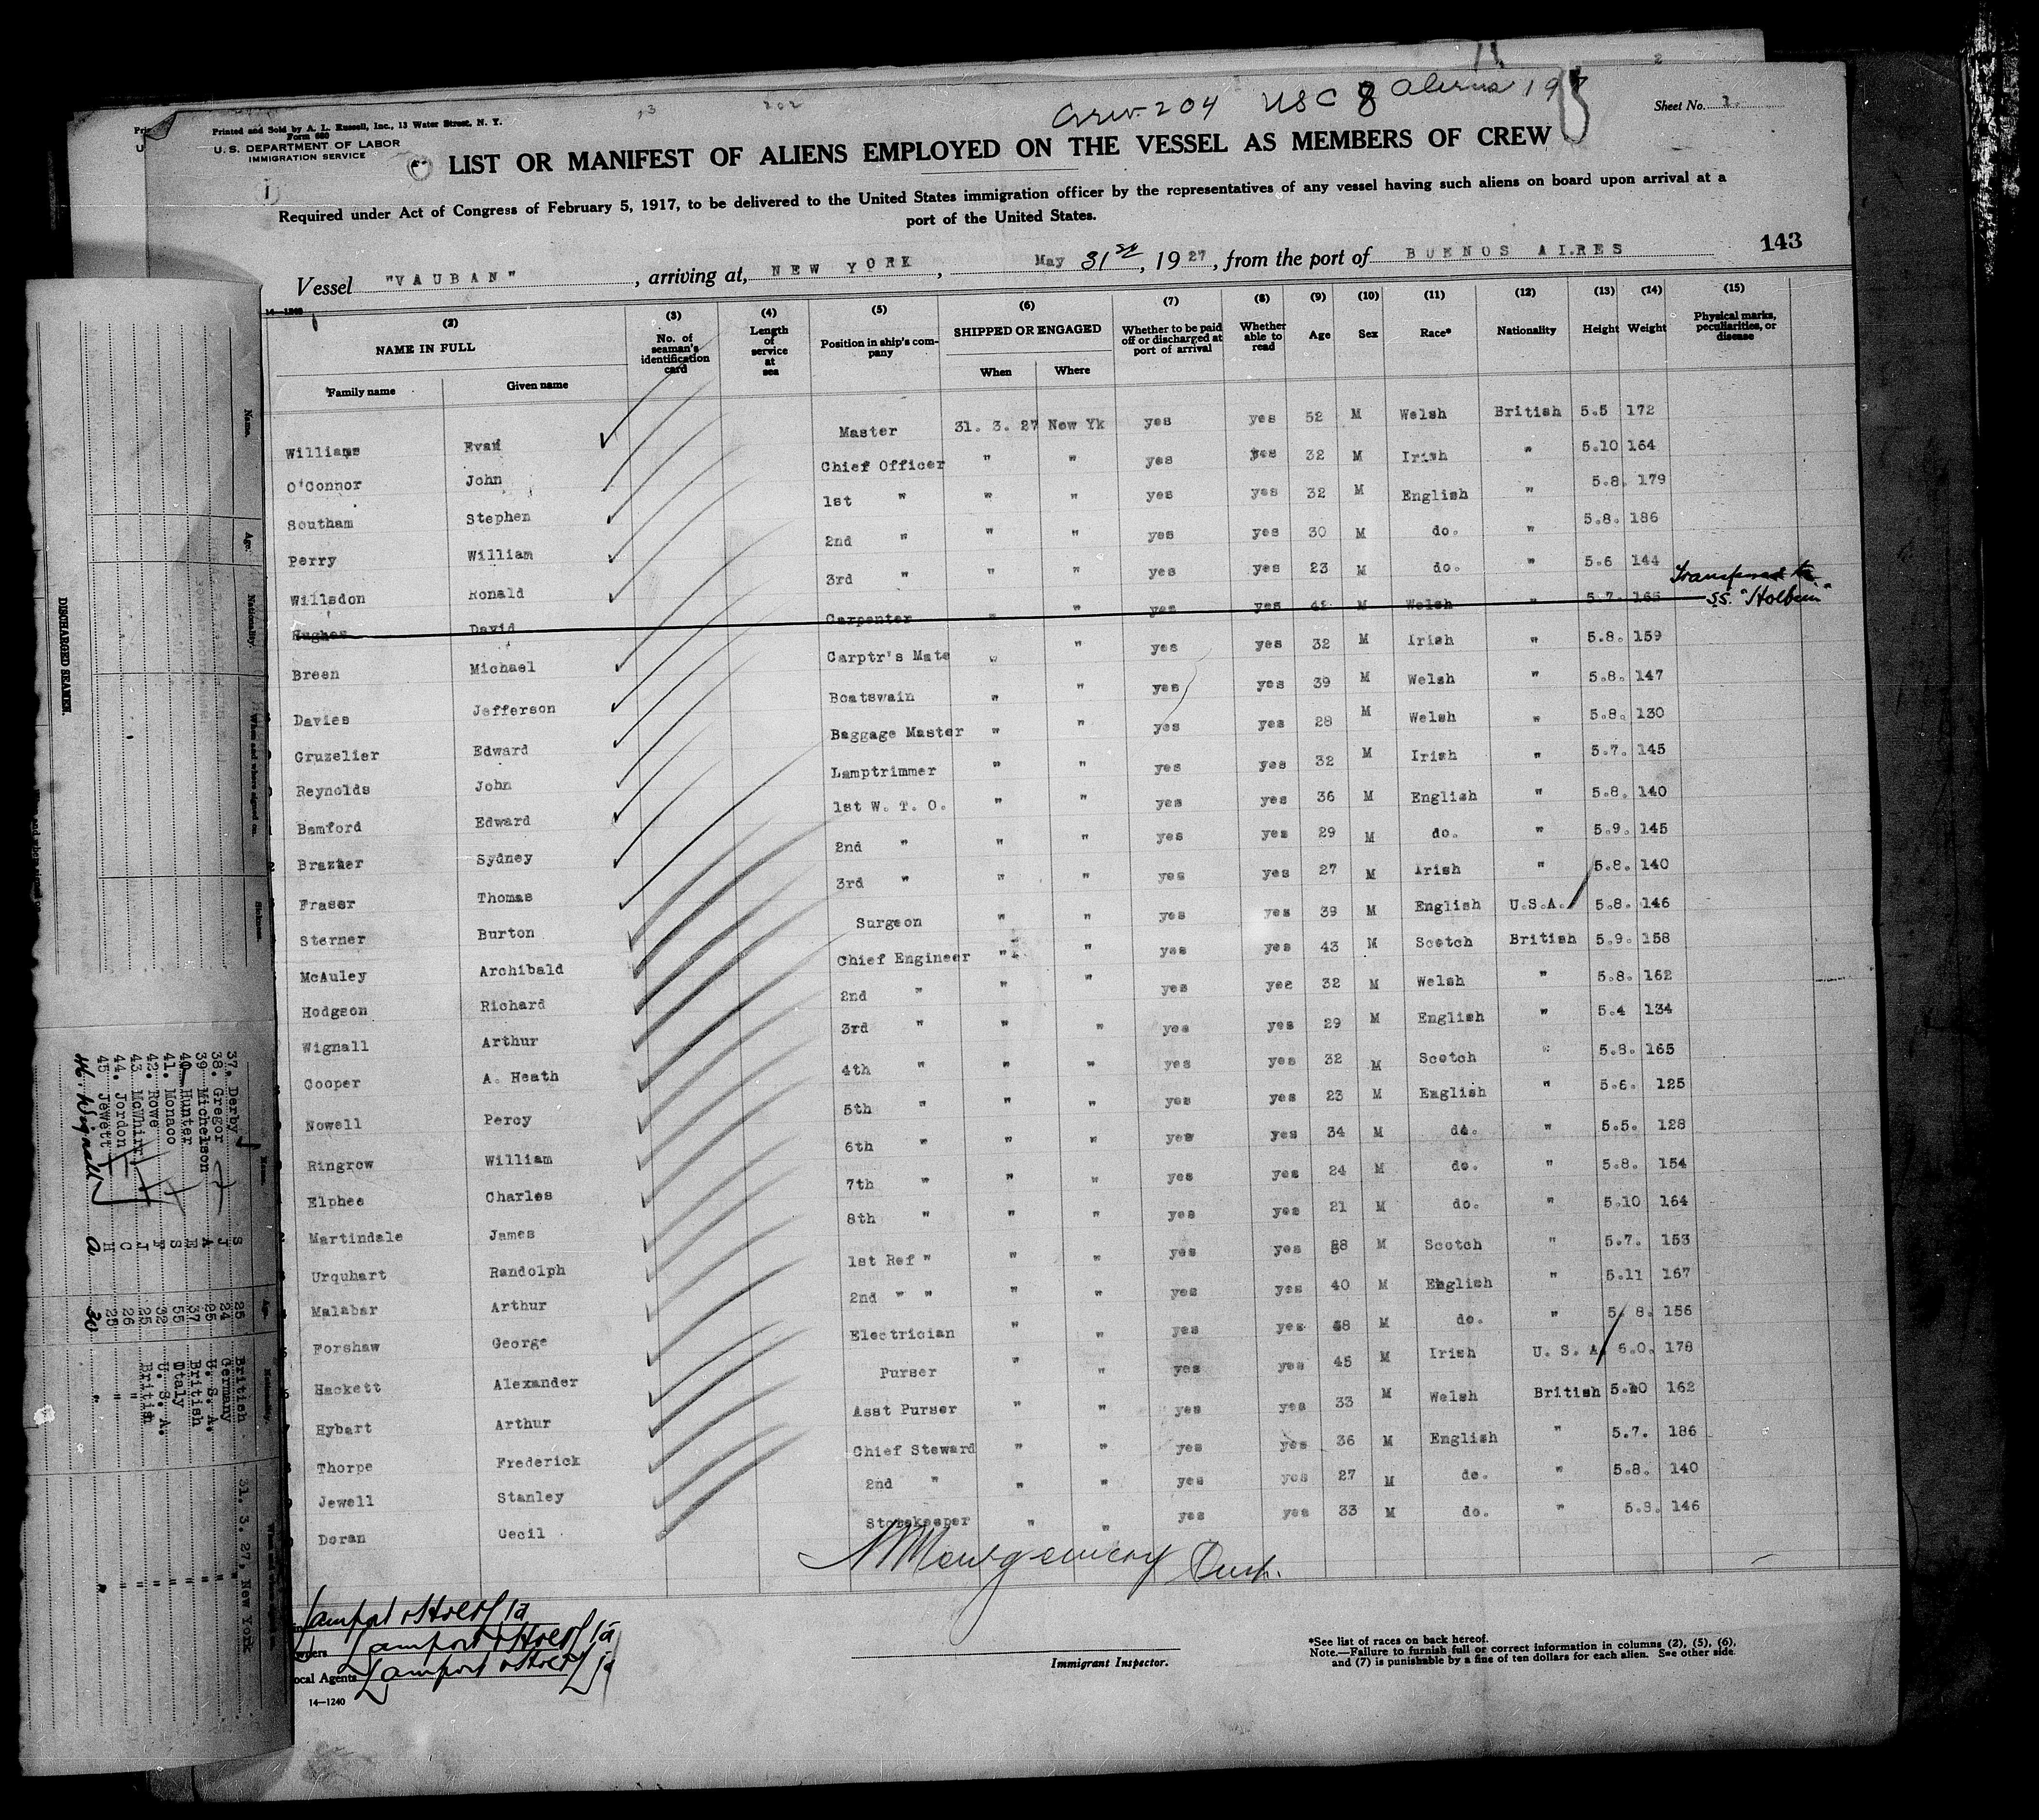 Crew. 204 USC 8 Aliens 19
Sheet No. 1.
Printed and Sold by A. L. Russell, Inc., 13 Water Street, N. Y.
Form 680
U. S. DEPARTMENT OF LABOR
IMMIGRATION SERVICE
LIST OR MANIFEST OF ALIENS EMPLOYED ON THE VESSEL AS MEMBERS OF CREW
Required under Act of Congress of February 5, 1917, to be delivered to the United States immigration officer by the representatives of any vessel having such aliens on board upon arrival at a
port of the United States.
143
Vessel "VAUBAN", arriving at, NEW YORK, May 31st, 1927, from the port of BUENOS AIRES
14—1240
(2) (3) (4) (5) (6) (7) (8) (9) (10) (11) (12) (13) (14) (15)
NAME IN FULL No. of seaman's identification card Length of service at sea Position in ship's company SHIPPED OR ENGAGED Whether to be paid off or discharged at port of arrival Whether able to read Age Sex Race* Nationality Height Weight Physical marks, peculiarities, or disease
Family name Given name When Where
Williams Evan Master 31. 3. 27 New Yk yes yes 52 M Welsh British 5.5 172
O'Connor John Chief Officer " " yes yes 32 M Irish " 5.10 164
Southam Stephen 1st " " " yes yes 32 M English " 5.8. 179
Perry William 2nd " " " yes yes 30 M do. " 5.8. 186
Willsdon Ronald 3rd " " " yes yes 23 M do. " 5.6 144
Hughes David Carpenter " " yes yes M Welsh 5.7. 165 Transferred to SS. "Holbein"
Breen Michael Carptr's Mate " " yes yes 32 M Irish " 5.8. 159
Davies Jefferson Boatswain " " yes yes 39 M Welsh " 5.8. 147
Gruzelier Edward Baggage Master " " yes yes 28 M Welsh " 5.8. 130
Reynolds John Lamptrimmer " " yes yes 32 M Irish " 5.7. 145
Bamford Edward 1st W. T. O. " " yes yes 36 M English " 5.8. 140
Brazier Sydney 2nd " " " yes yes 29 M do. " 5.9. 145
Fraser Thomas 3rd " " " yes yes 27 M Irish " 5.8. 140
Sterner Burton Surgeon " " yes yes 39 M English U.S.A. 5.8. 146
McAuley Archibald Chief Engineer " " yes yes 43 M Scotch British 5.9. 158
Hodgson Richard 2nd " " " yes yes 32 M Welsh " 5.8. 162
Wignall Arthur 3rd " " " yes yes 29 M English " 5.4 134
Cooper A. Heath 4th " " " yes yes 32 M Scotch " 5.8. 165
Nowell Percy 5th " " " yes yes 23 M English " 5.6. 125
Ringrow William 6th " " " yes yes 34 M do. " 5.5. 128
Elphee Charles 7th " " " yes yes 24 M do. " 5.8. 154
Martindale James 8th " " " yes yes 21 M do. " 5.10 164
Urquhart Randolph 1st Ref " " " yes yes M Scotch " 5.7. 153
Malabar Arthur 2nd " " " " yes yes 40 M English " 5.11 167
Forshaw George Electrician " " yes yes 48 M do. " 5. 8. 156
Hackett Alexander Purser " " yes yes 45 M Irish U. S. A. 6.0. 178
Hybart Arthur Asst Purser " " yes yes 33 M Welsh British 5.10 162
Thorpe Frederick Chief Steward " " yes yes 36 M English " 5.7. 186
Jewell Stanley 2nd " " " yes yes 27 M do. " 5.8. 140
Doran Cecil Storekeeper " " yes yes 33 M do. " 5.8. 146
Montgomery
Lamport & Holt Ld
Owners Lamport & Holt Ld
Local Agents Lamport & Holt Ld
14—1240
Immigrant Inspector.
*See list of races on back hereof.
Note.—Failure to furnish full or correct information in columns (2), (5), (6),
and (7) is punishable by a fine of ten dollars for each alien. See other side.
DISCHARGED SEAMEN.
Name. Age. Nationality. When and where signed on. Sickness.
37. Derby S 25 British 31. 3. 27, New York
38. Gregor J 24 Germany "
39 Michelson A 25 U. S. A. "
40 Hunter 37 British "
41. Monaco S 55 Italy "
42. Rowe F 32 U. S. A. "
43 McWhirr J 25 British "
44. Jordon C 26 " "
45 Jewett H 25 " "
46. Wignall A 30 " "